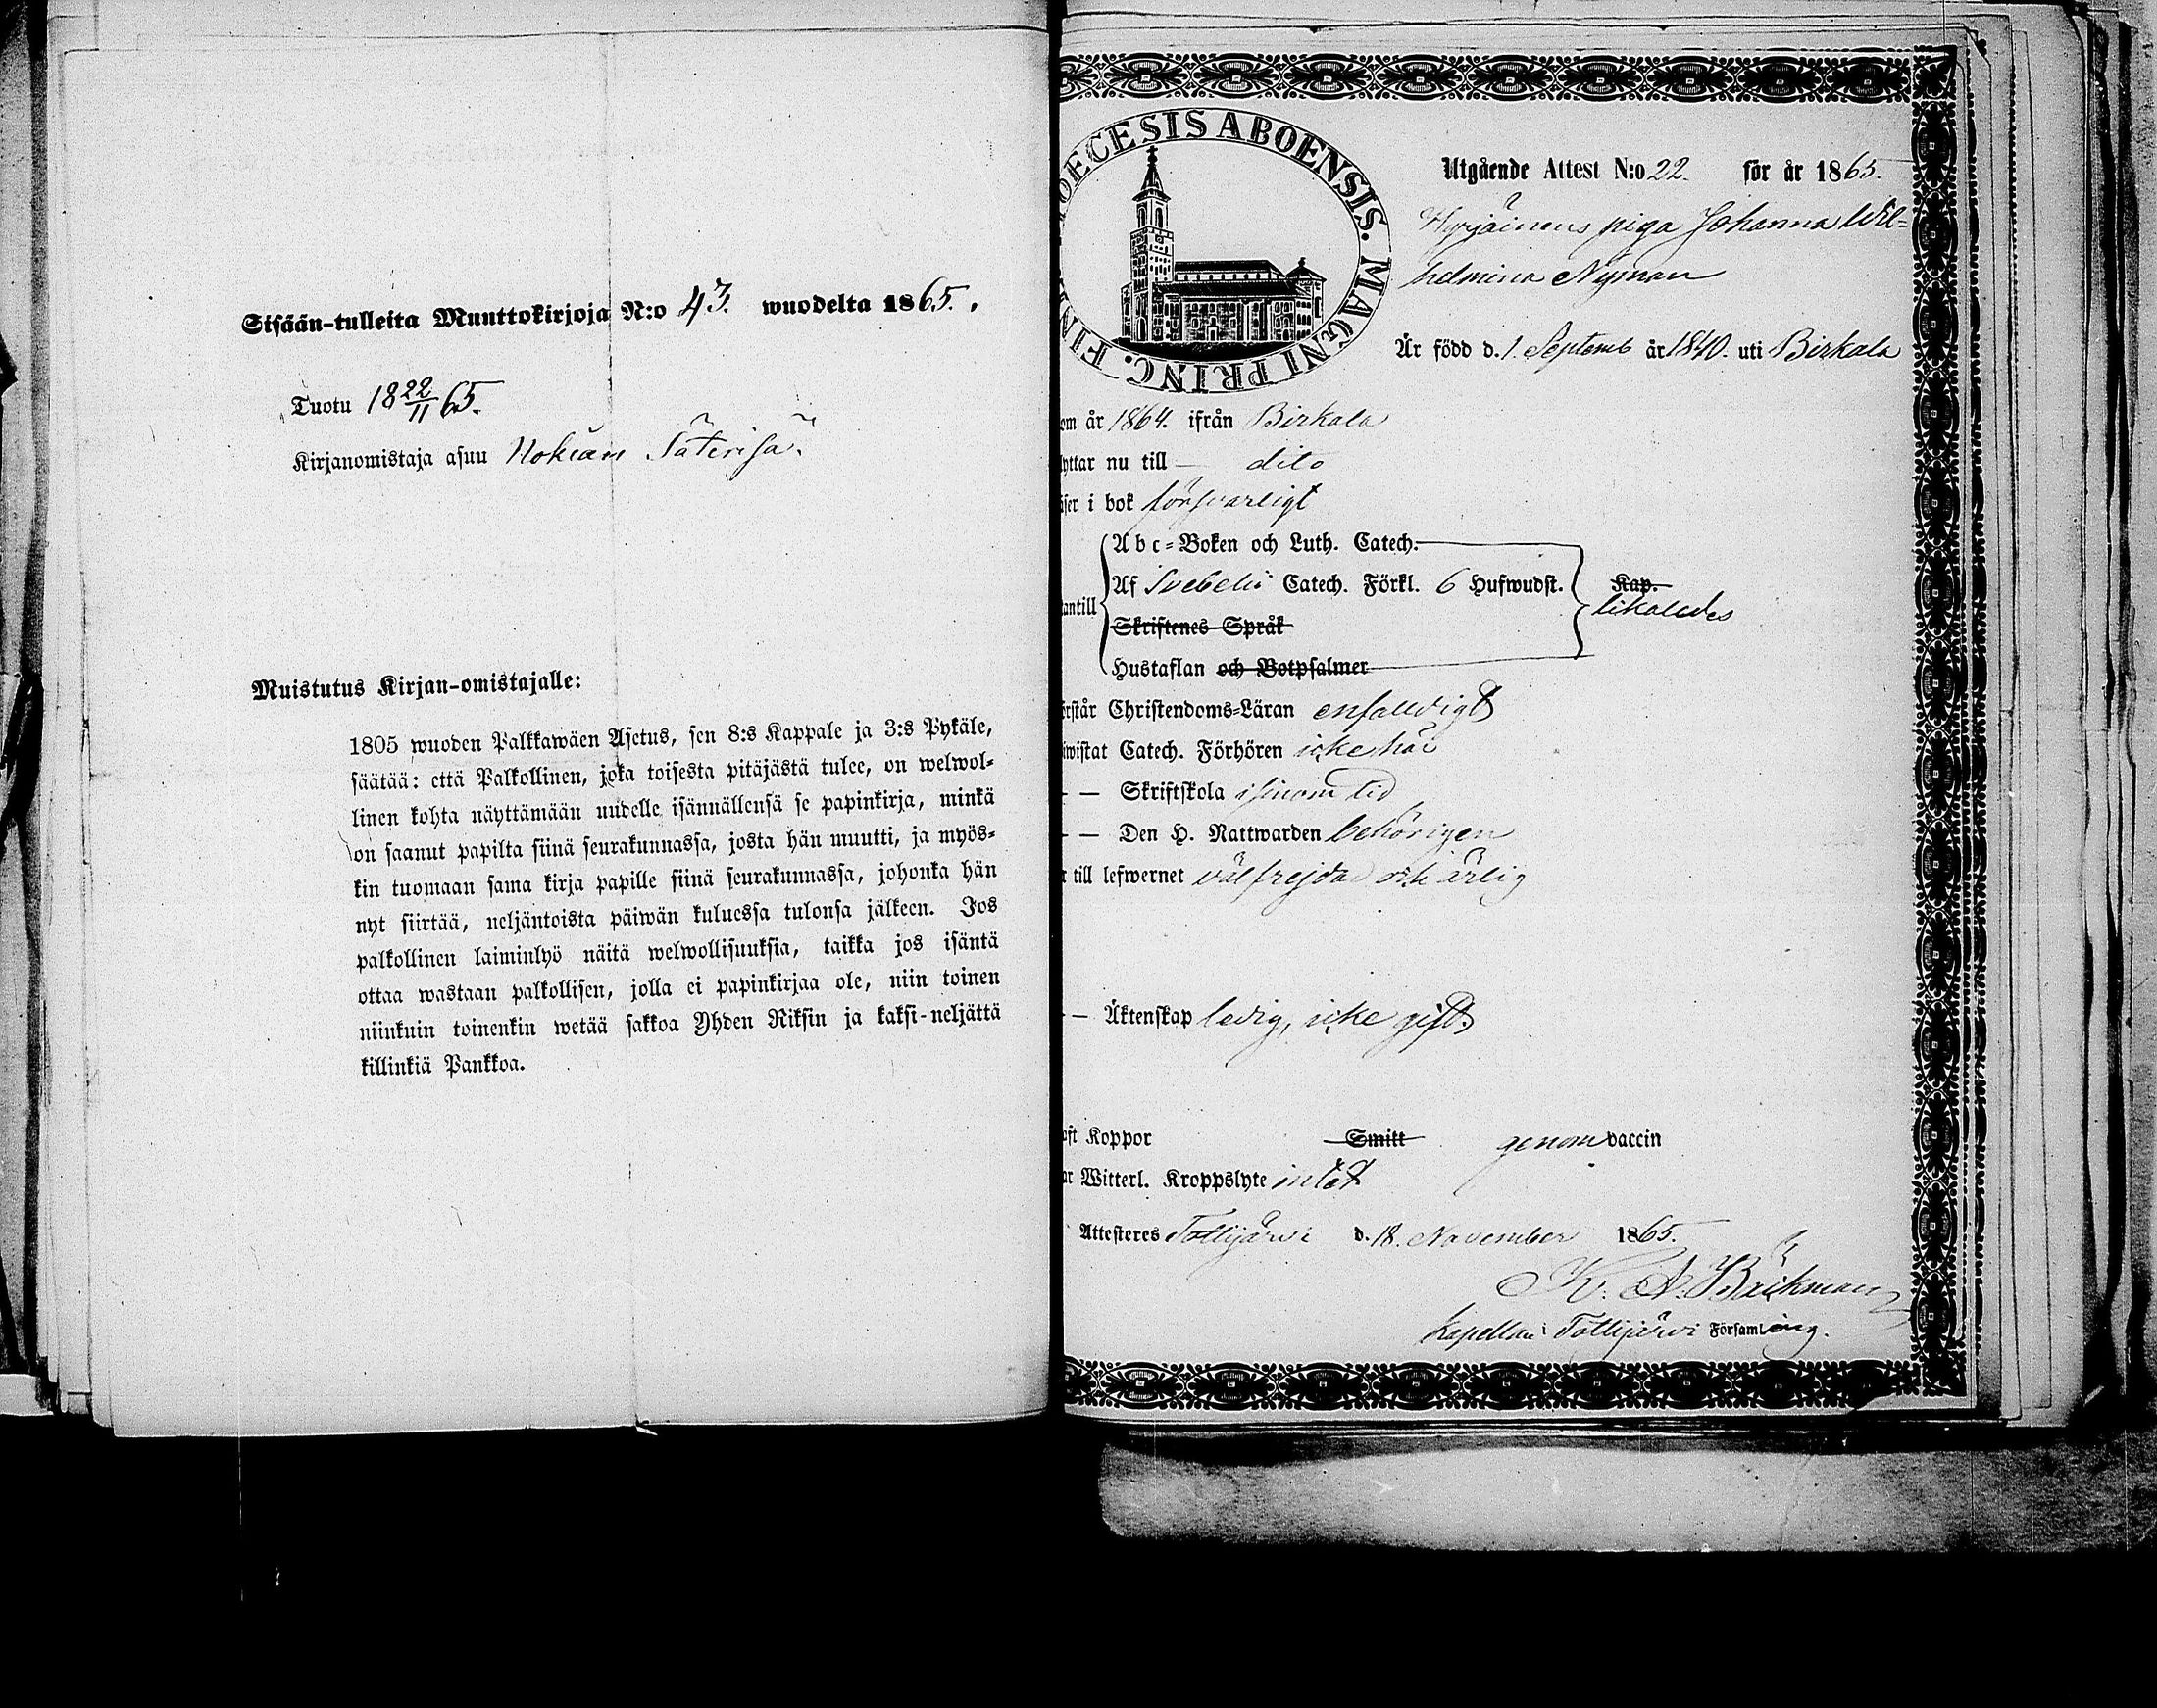 Sisään-tulleita Muuttokirjoja N:o 43. wuodelta 1865.
Tuotu 18 22/11 65.
Kirjanomistaja asuu Nokian Säterisä.
Muistutus Kirjan-omistajalle:
1805 wuoden Palkkawäen Asetus, sen 8:s Kappale ja 3:s Pykäle,
säätää: että Palkollinen, joka toisesta pitäjästä tulee, on welwol-
linen kohta näyttämään uudelle isännällensä se papinkirja, minkä
on saanut papilta siinä seurakunnassa, josta hän muutti, ja myös-
kin tuomaan sama kirja papille siinä seurakunnassa, johonka hän
nyt siirtää, neljäntoista päiwän kuluessa tulonsa jälkeen. Jos
palkollinen laiminlyö näitä welwollisuuksia, taikka jos isäntä
ottaa wastaan palkollisen, jolla ei papinkirjaa ole, niin toinen
niinkuin toinenkin wetää sakkoa Yhden Riksin ja kaksi-neljättä
killinkiä Pankkoa.
OECESIS ABOENSIS. MAGNI PRINC. FIN
Utgående Attest N:o 22. för år 1865.
Hyrjäinens piga Johanna Wil-
helmina Nyman
Är född d. 1. Septemb år 1840. uti Birkala
om år 1864. ifrån Birkala
yttar nu till — dito
äser i bok försvarligt
antill
Abc-Boken och Luth. Catech.
Af Svebelii Catech. Förkl. 6 Hufwudst. Kap.
likaledes
Skriftenes Språk
Hustaflan och Botpsalmer
örstår Christendoms-Läran enfaldigt
iwistat Catech. Förhören icke här
— — Skriftskola i sinom tid
— — Den H. Nattwarden behörigen
r till lefwernet välfrejdad och ärlig
— — Äktenskap ledig, icke gift.
oft Koppor Smitt genom vaccin
ar Witterl. Kroppslyte intet
Attesteres Tottijärvi d. 18. November 1865.
K. A. Bäckman
Kapellan i Tottijärvi Församling.